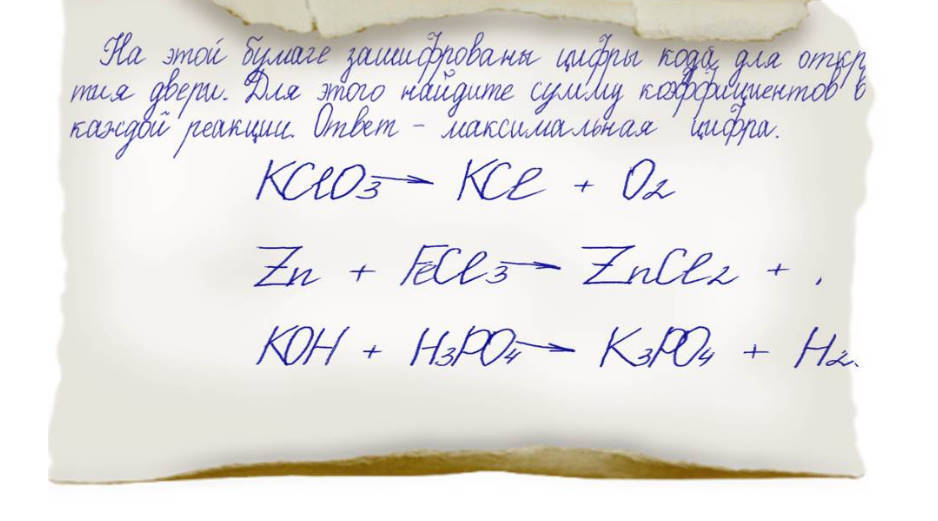 На этой бумаге зашифрованы цифры кода для откр
тия двери. Для этого найдите сумму коэффициентов в
каждой реакции. Ответ - максимальная цифра.
KClO3 → KCl + O2
Zn + FeCl3 → ZnCl2 +
KOH + H3PO4 → K3PO4 + H2